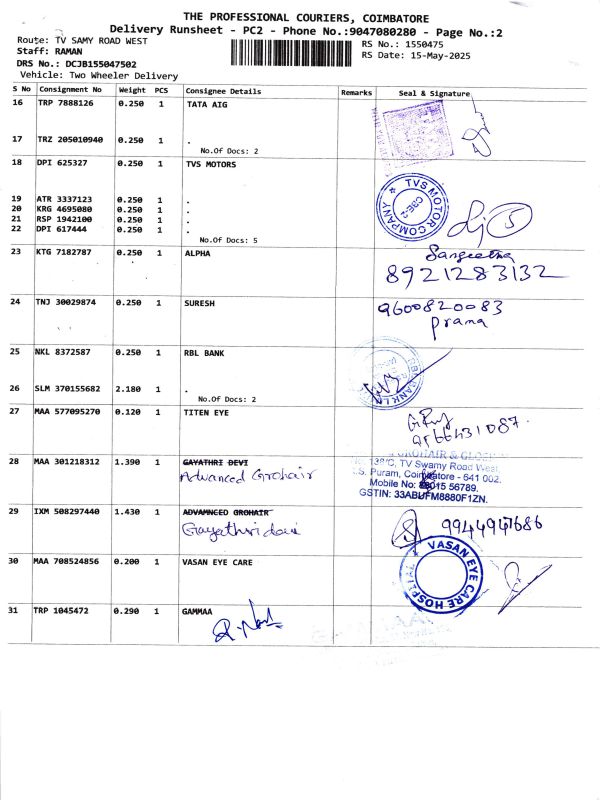 THE PROFESSIONAL COURIERS, COIMBATORE
Delivery Runsheet - PC2 - Phone No.:9047080280 - Page No.:2
Route: TV SAMY ROAD WEST
Staff: RAMAN
DRS No.: DCJB155047502
Vehicle: Two Wheeler Delivery
RS No.: 1550475
RS Date: 15-May-2025
S No Consignment No Weight PCS Consignee Details Remarks Seal & Signature
16 TRP 7888126 0.250 1 TATA AIG
17 TRZ 205010940 0.250 1 .
No.Of Docs: 2
18 DPI 625327 0.250 1 TVS MOTORS
TVS MOTOR COMPANY
CBE-2
19 ATR 3337123 0.250 1 .
20 KRG 4695080 0.250 1 .
21 RSP 1942100 0.250 1 .
22 DPI 617444 0.250 1 .
No.Of Docs: 5
23 KTG 7182787 0.250 1 ALPHA
Sangeetha
8921283132
24 TNJ 30029874 0.250 1 SURESH
9600820083
prama
25 NKL 8372587 0.250 1 RBL BANK
RBL BANK
26 SLM 370155682 2.180 1 .
No.Of Docs: 2
27 MAA 577095270 0.120 1 TITEN EYE
28 MAA 301218312 1.390 1 GAYATHRI DEVI
Advanced Grohair
GROHAIR &
138/C, TV Swamy Road West
.S. Puram, Coimbatore - 641 002.
Mobile No: 15 56789.
GSTIN: 33ABUFM8880F1ZN.
29 IXM 508297440 1.430 1 ADVAMNCED GROHAIR
Gayathri devi
9944947686
30 MAA 708524856 0.200 1 VASAN EYE CARE
VASAN EYE CARE HOSPITAL
31 TRP 1045472 0.290 1 GAMMAA